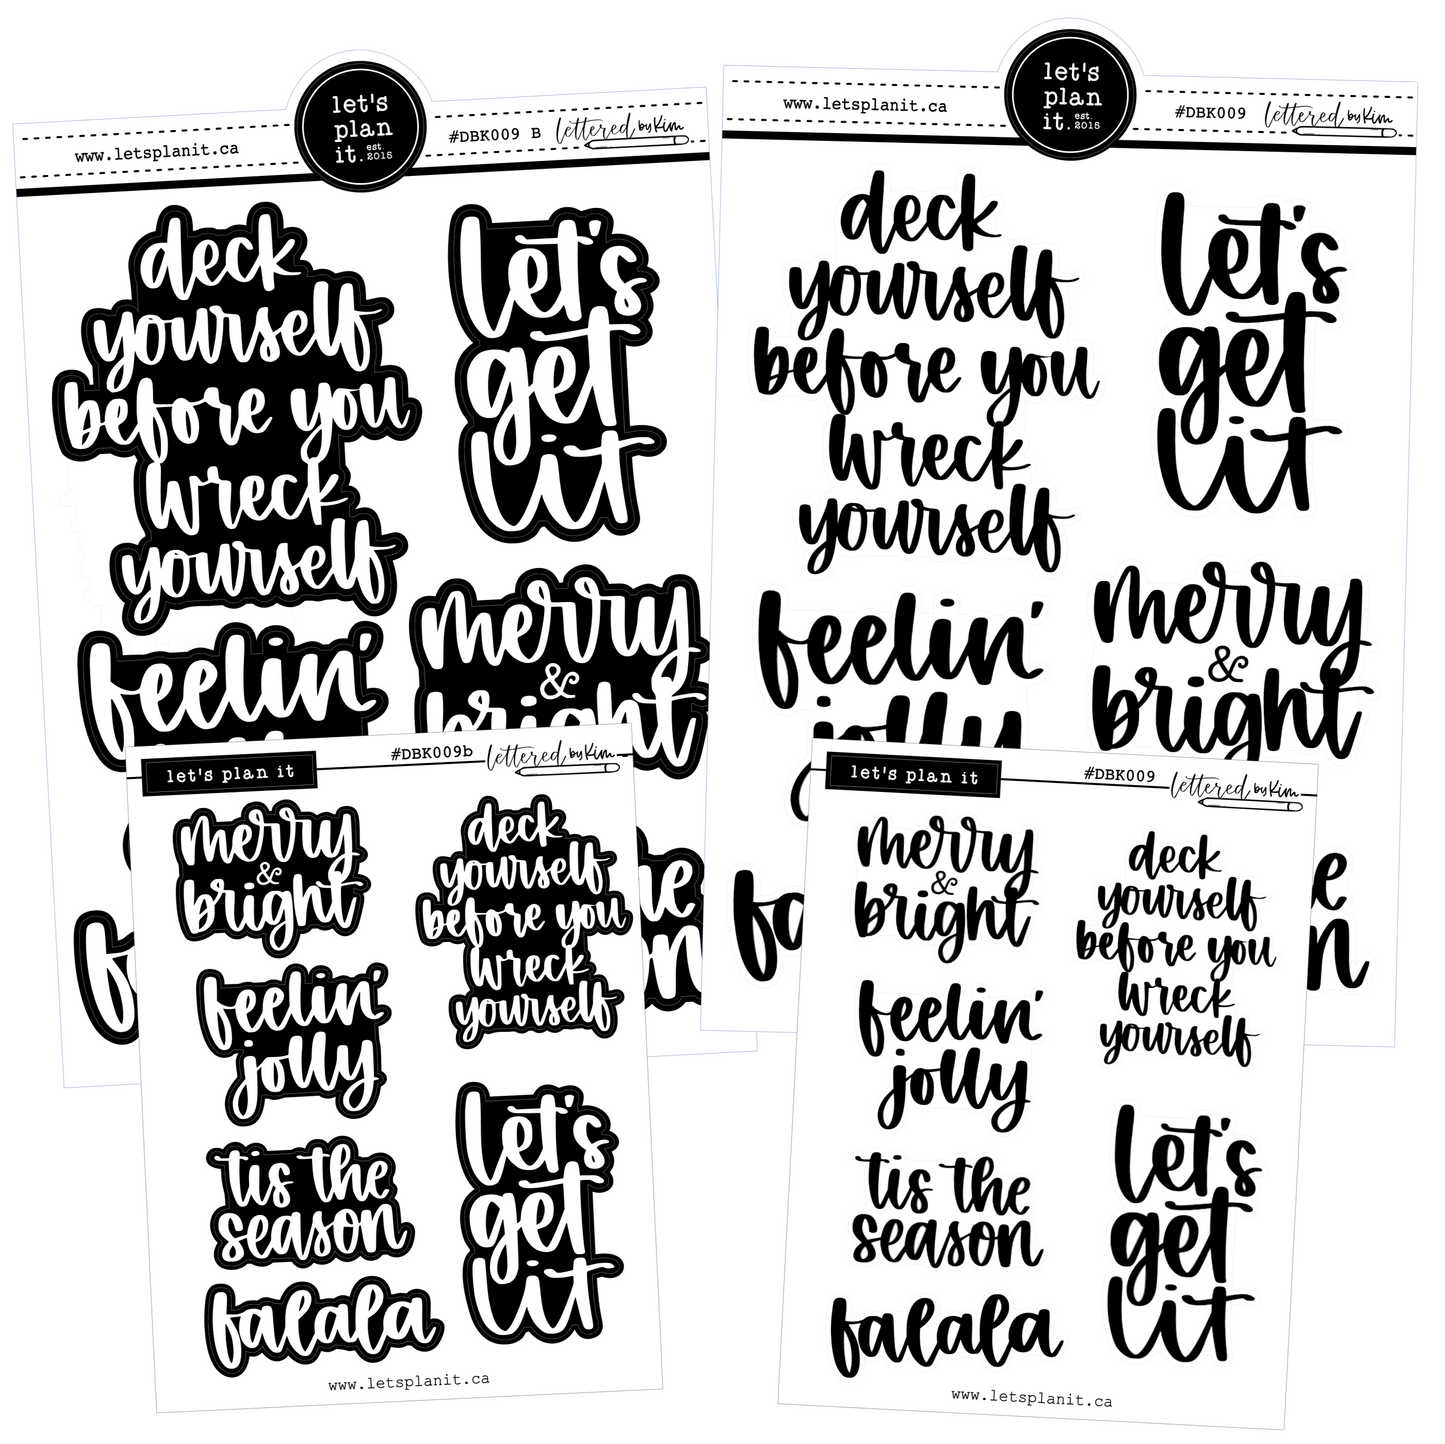 www.letsplanit.ca
let's
plan
it. est. 2015
#DBK009 B lettered by Kim
deck
yourself
before you
wreck
yourself
let's
get
lit
feelin'
merry
&
bright
www.letsplanit.ca
let's
plan
it. est. 2015
#DBK009 lettered by Kim
deck
yourself
before you
wreck
yourself
let's
get
lit
feelin'
jolly
merry
&
bright
let's plan it
#DBK009b lettered by Kim
merry
&
bright
deck
yourself
before you
wreck
yourself
feelin'
jolly
tis the
season
let's
get
lit
falala
www.letsplanit.ca
let's plan it
#DBK009 lettered by Kim
merry
&
bright
deck
yourself
before you
wreck
yourself
feelin'
jolly
tis the
season
let's
get
lit
falala
www.letsplanit.ca